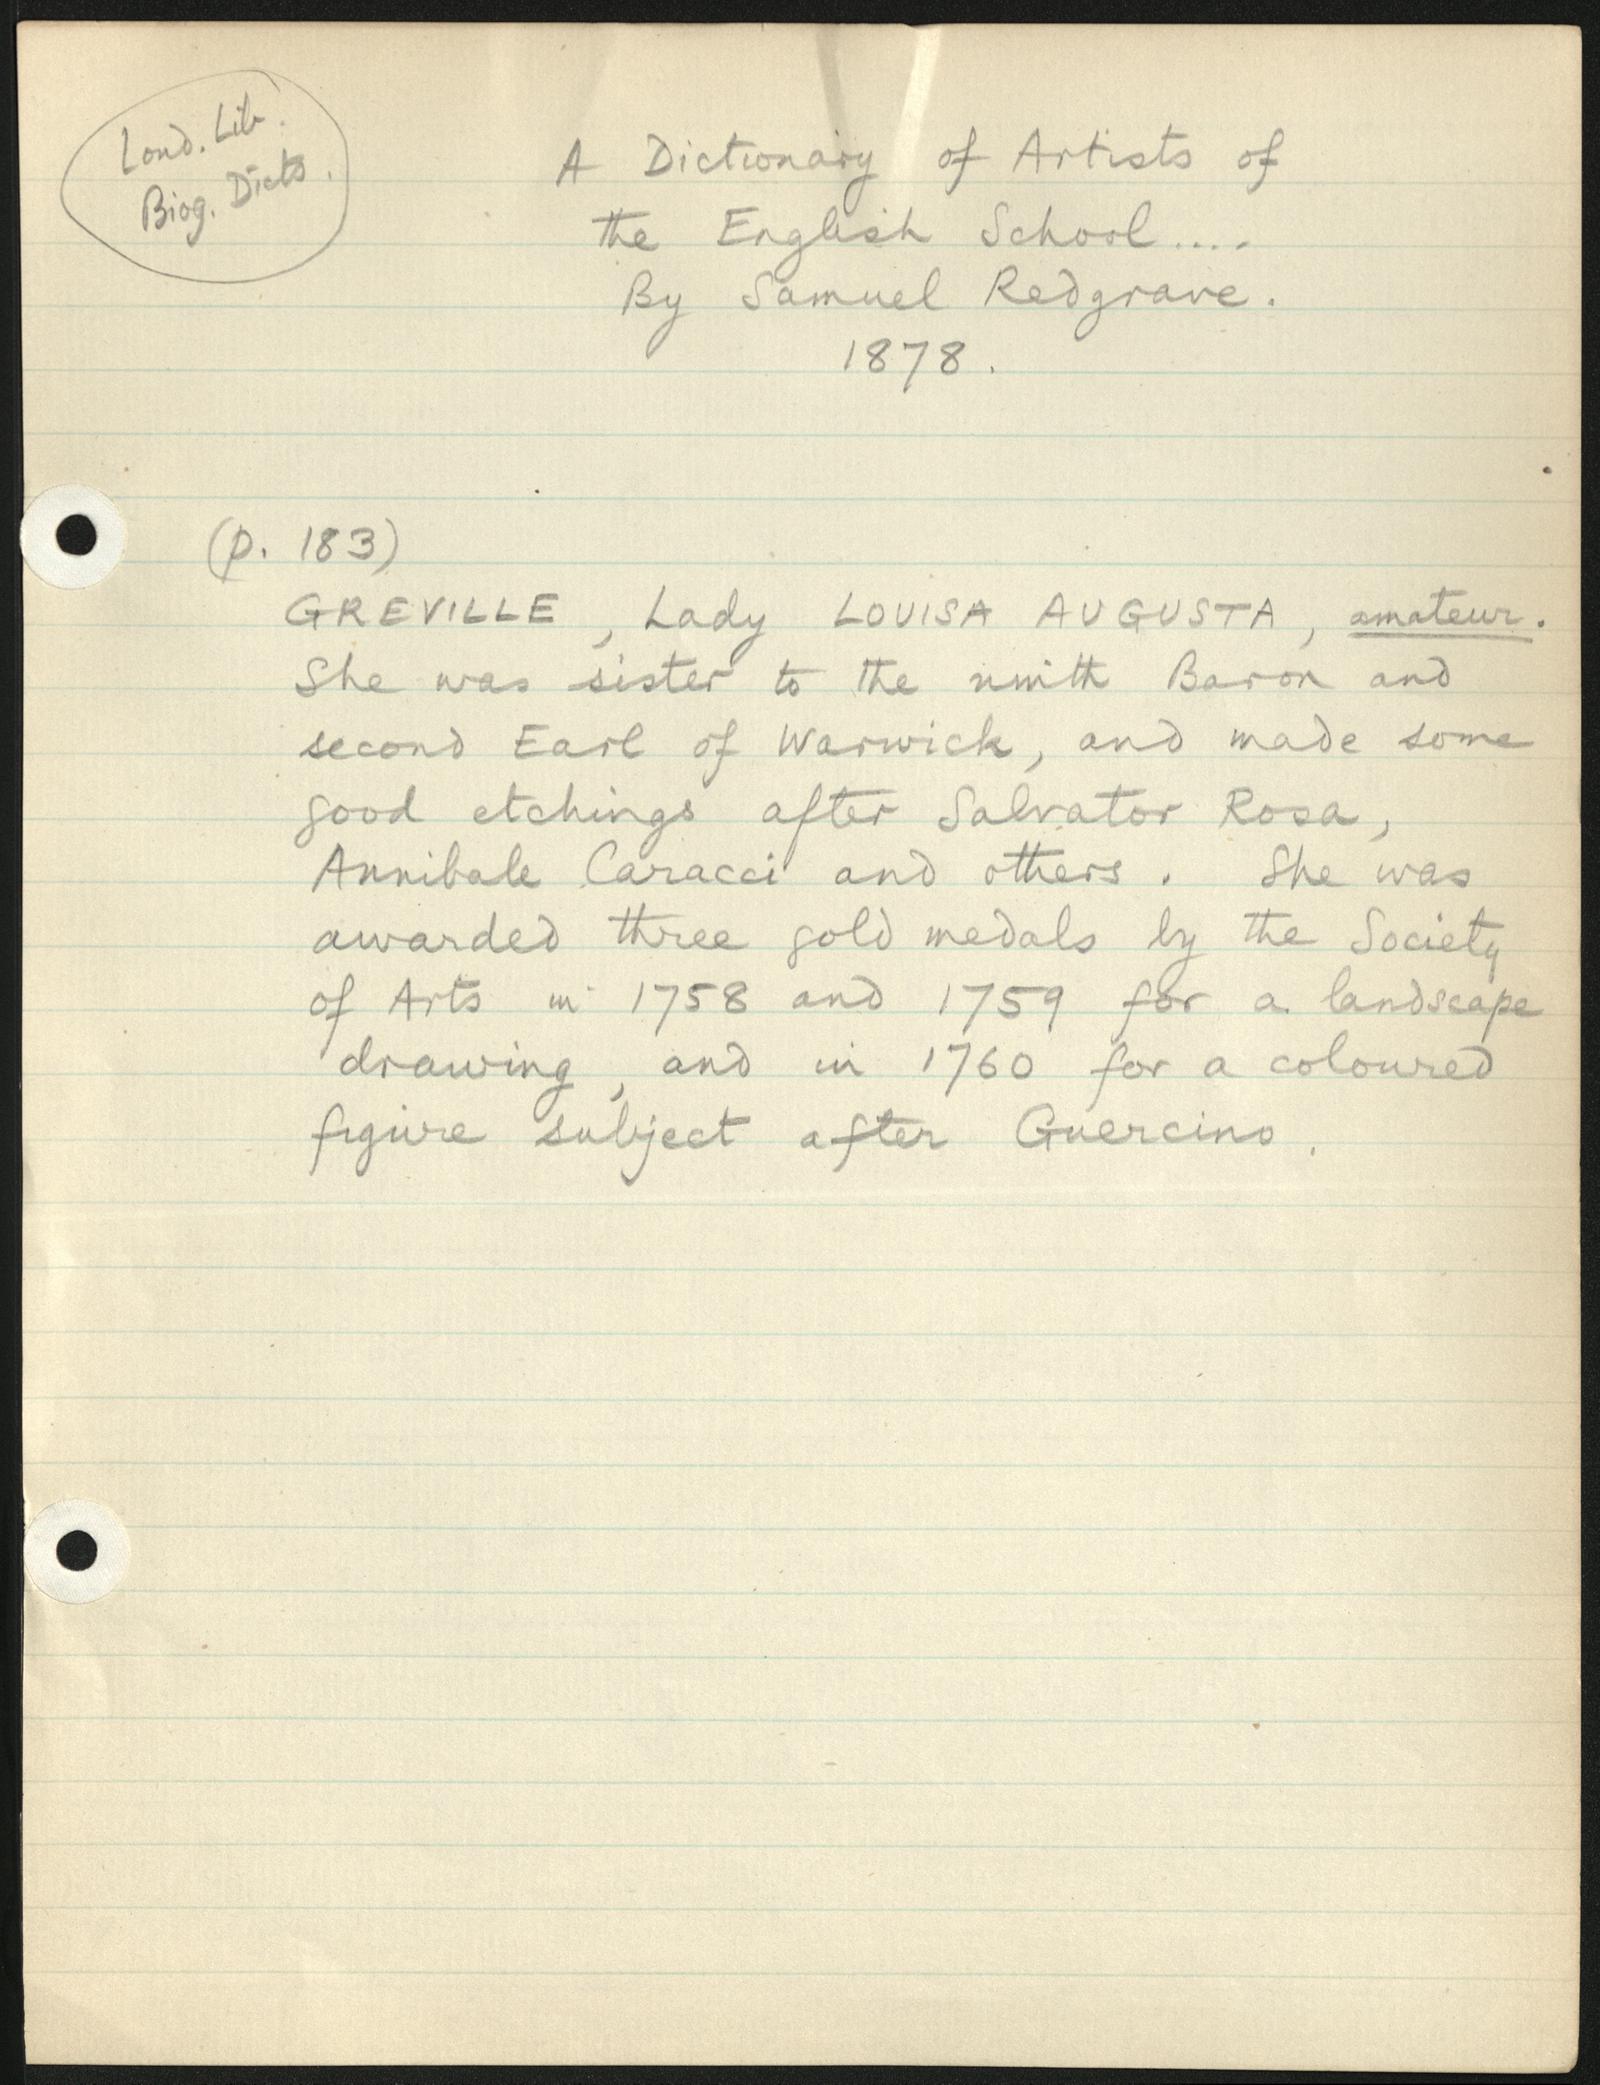 Lond. Lib.
Biog. Dicts.
A Dictionary of Artists of
the English School....
By Samuel Redgrave.
1878.
(p. 183)
GREVILLE, Lady LOUISA AUGUSTA, amateur.
She was sister to the ninth Baron and
second Earl of Warwick, and made some
good etchings after Salvator Rosa,
Annibale Caracci and others. She was
awarded three gold medals by the Society
of Arts in 1758 and 1759 for a landscape
drawing, and in 1760 for a coloured
figure subject after Guercino.